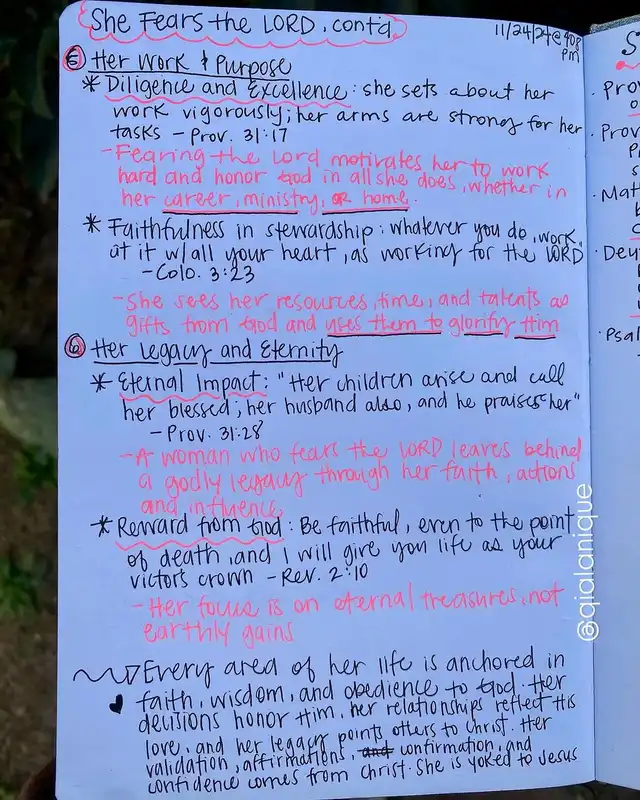 She Fears the LORD, cont'd
11/24/24 @ 908 pm
⑤ Her Work & Purpose
* Diligence and Excellence: she sets about her
work vigorously; her arms are strong for her
tasks - Prov. 31:17
- Fearing the Lord motivates her to work
hard and honor God in all she does, whether in
her career, ministry, or home.
* Faithfulness in stewardship: whatever you do, work
at it w/ all your heart, as working for the LORD
- Colo. 3:23
- She sees her resources, time, and talents as
gifts from God and uses them to glorify Him
⑥ Her Legacy and Eternity
* Eternal Impact: "Her children arise and call
her blessed; her husband also, and he praises her"
- Prov. 31:28
- A woman who fears the LORD leaves behind
a godly legacy through her faith, actions
and influence.
* Reward from God: Be faithful, even to the point
of death, and I will give you life as your
victor's crown - Rev. 2:10
- Her focus is on eternal treasures, not
earthly gains
Every area of her life is anchored in
faith, wisdom, and obedience to God. Her
decisions honor Him, her relationships reflect His
love, and her legacy points others to Christ. Her
validation, affirmations, and confirmation, and
confidence comes from Christ. She is yoked to Jesus
· Prov
· Prov
· Mat
· Deu
· Psal
@qialanique